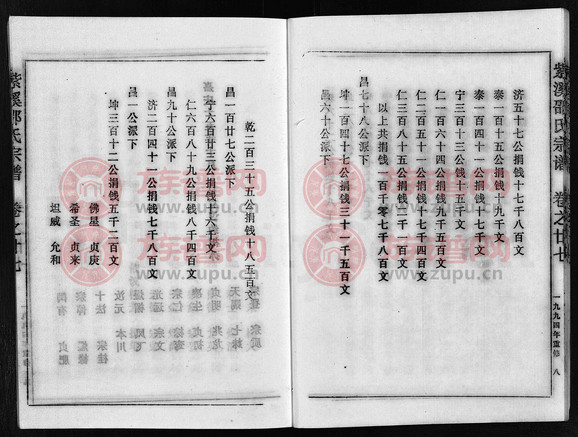 紫溪邵氏宗谱 卷之廿七
一九九四年重修 八
济五十七公捐钱十七千八百文
泰一百六十一公捐钱十九千文
泰一百四十一公捐钱十七千文
宁三百十三公捐钱十六千文
仁一百六十一公捐钱九千五百文
仁二百五十一公捐钱十一千文
仁三百八十五公捐钱十千四百文
以上共捐钱一百千零七千八百文
昌七十八公派下
坤一百九十公捐钱三十一千五百文
昌六十公派下
乾二百三十五公捐钱十八千五百文
昌一百廿七公派下
宁六百廿三公捐钱十六千文
仁六百八十九公捐钱八千四百文
昌九十公派下
济二百四十一公捐钱七千八百文
昌一公派下
坤三百十二公捐钱五千二百文
佛星 贞庚
希圣 贞来
坦威 允和
紫溪邵氏宗谱 卷之廿七
族谱网
www.zupu.cn